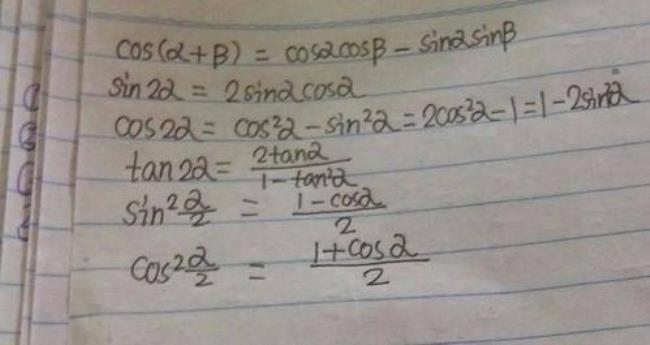 cos(α+β) = cosαcosβ - sinαsinβ
sin2α = 2sinαcosα
cos2α = cos²α - sin²α = 2cos²α - 1 = 1 - 2sin²α
tan2α = 2tanα / 1 - tan²α
sin² α/2 = 1 - cosα / 2
cos² α/2 = 1 + cosα / 2